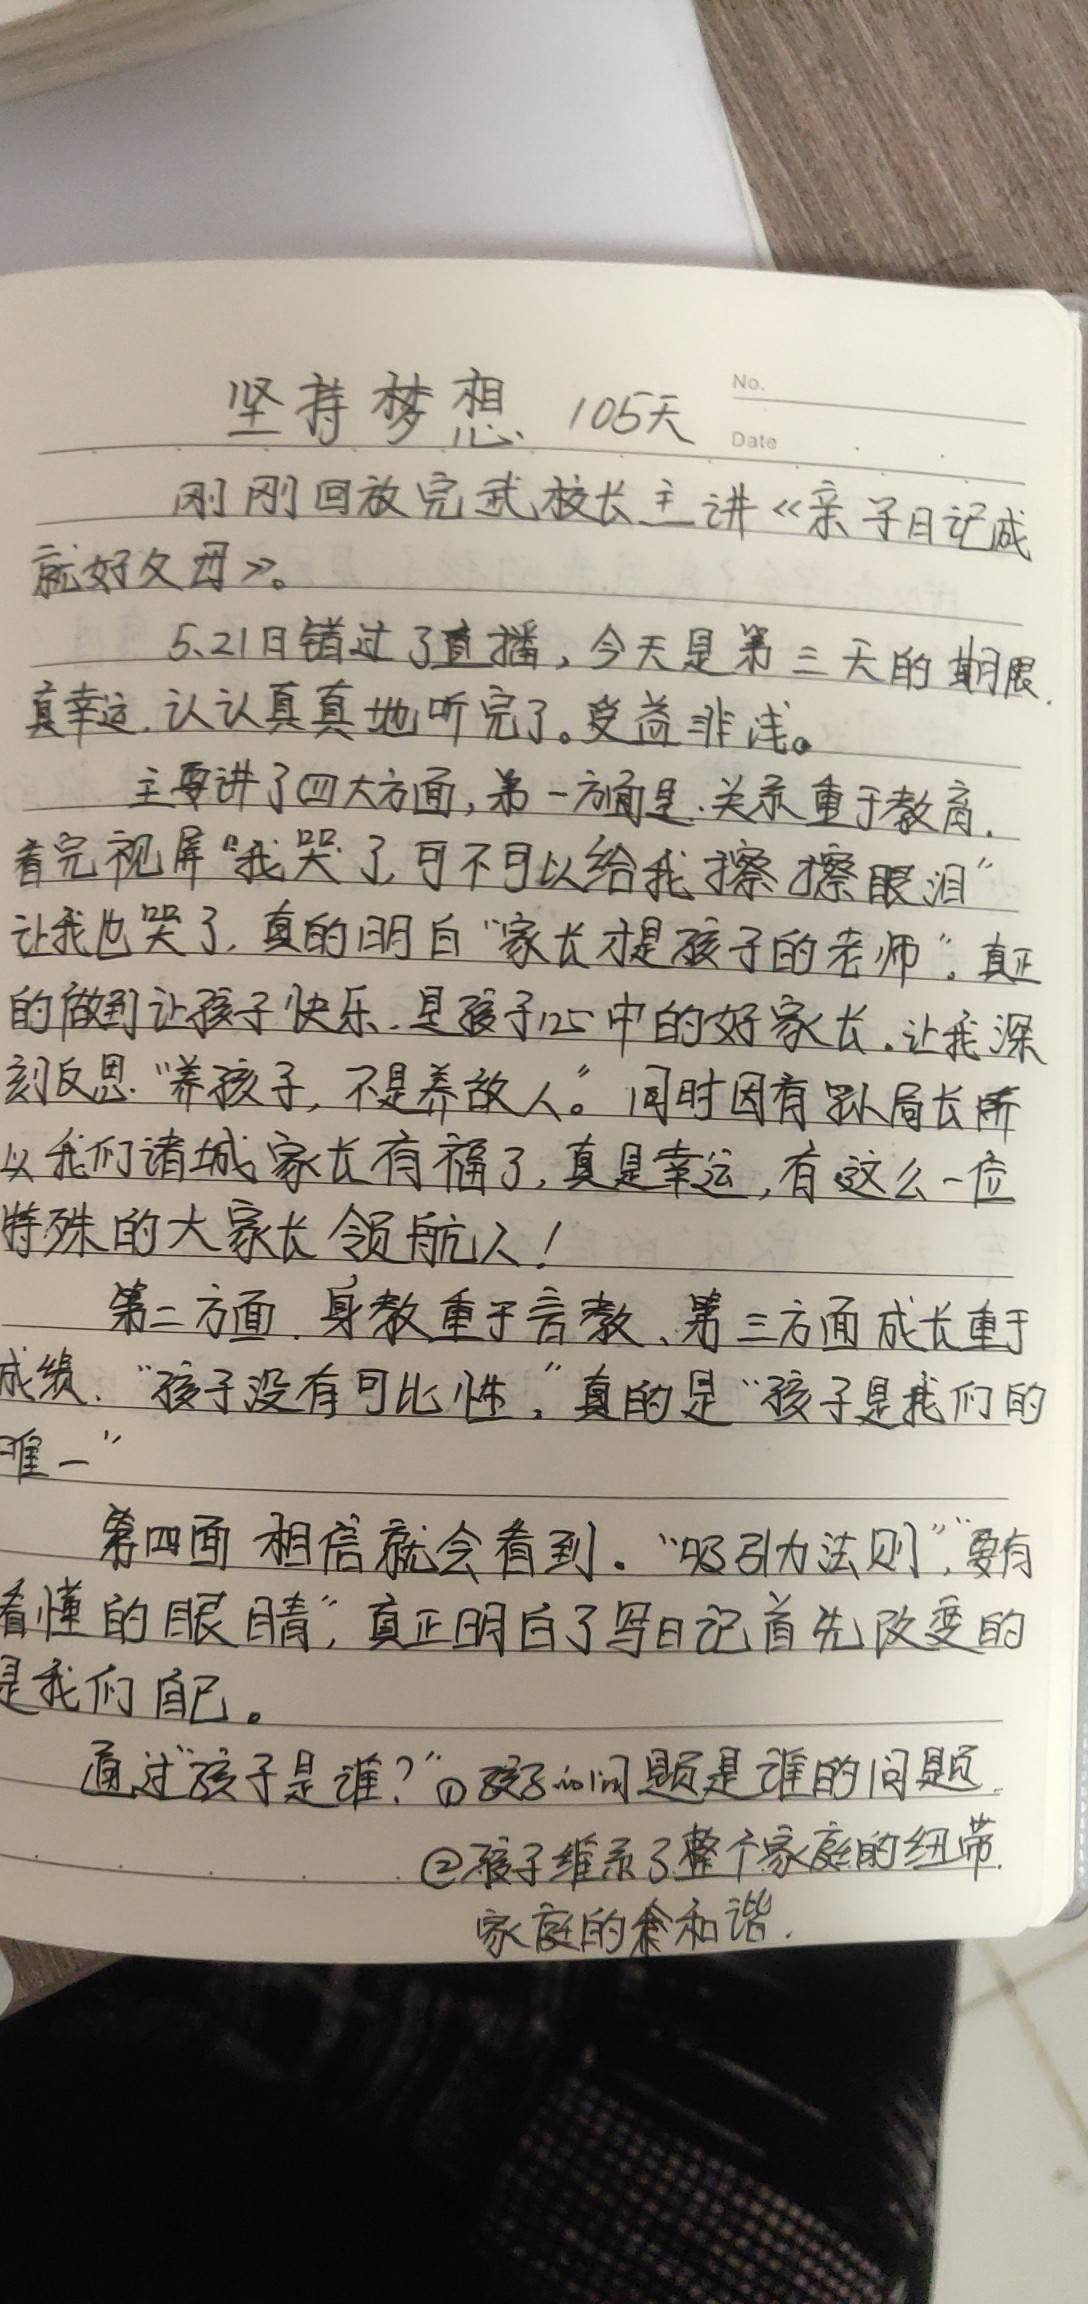 坚持梦想 105天
No.
Date
刚刚回放完武校长主讲《亲子日记成
就好父母》。
5.21日错过了直播,今天是第三天的期限.
真幸运.认认真真地听完了。受益非浅。
主要讲了四大方面,第一方面是.关系重于教育.
看完视屏“我哭了,可不可以给我擦擦眼泪”
让我也哭了,真的明白“家长才是孩子的老师”。真正
的做到让孩子快乐.是孩子心中的好家长.让我深
刻反思.“养孩子,不是养敌人”。同时因有 局长所
以我们诸城家长有福了,真是幸运,有这么一位
特殊的大家长领航人!
第二方面.身教重于言教、第三方面成长重于
成绩.“孩子没有可比性,”真的是“孩子是我们的
唯一”
第四面 相信就会看到.“吸引力法则”,“要有
看懂的眼睛”,真正明白了写日记首先改变的
是我们自己。
通过“孩子是谁?”①孩子的问题是谁的问题.
②孩子维系了整个家庭的纽带.
家庭的 和谐.